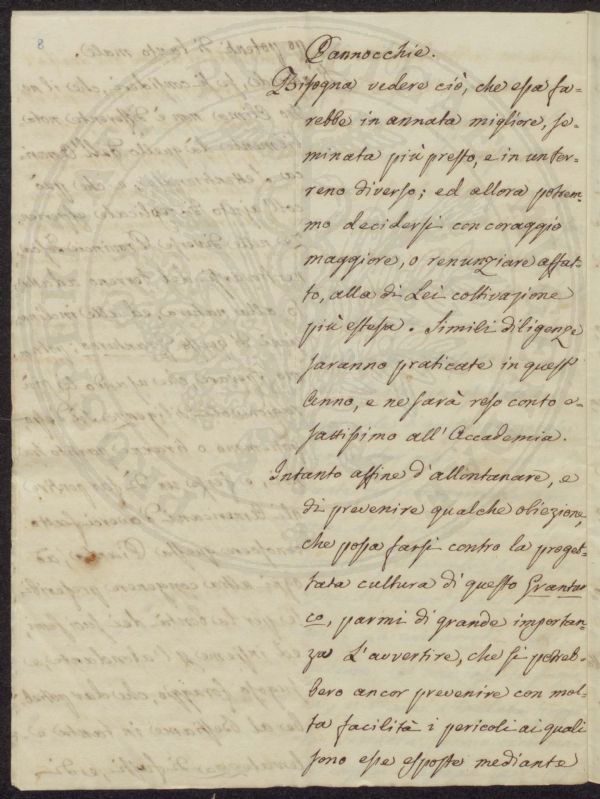 8
Pannocchie.
Bisogna vedere ciò, che essa fa=
rebbe in annata migliore, se=
minata più presto, e in un ter=
reno diverso; ed allora potrem=
mo decidersi con coraggio
maggiore, o renunziare affat=
to, alla di Lei coltivazione
più estesa. Simili diligenze
saranno praticate in quest'
Anno, e ne sarà reso conto e=
sattissimo all'Accademia.
Intanto affine d'allontanare, e
di prevenire qualche obiezione,
che possa farsi contro la proget=
tata cultura di questo Grantur=
co, parmi di grande importan=
za L'avvertire, che si potreb=
bero ancor prevenire con mol=
ta facilità i pericoli ai quali
sono esse esposte mediante